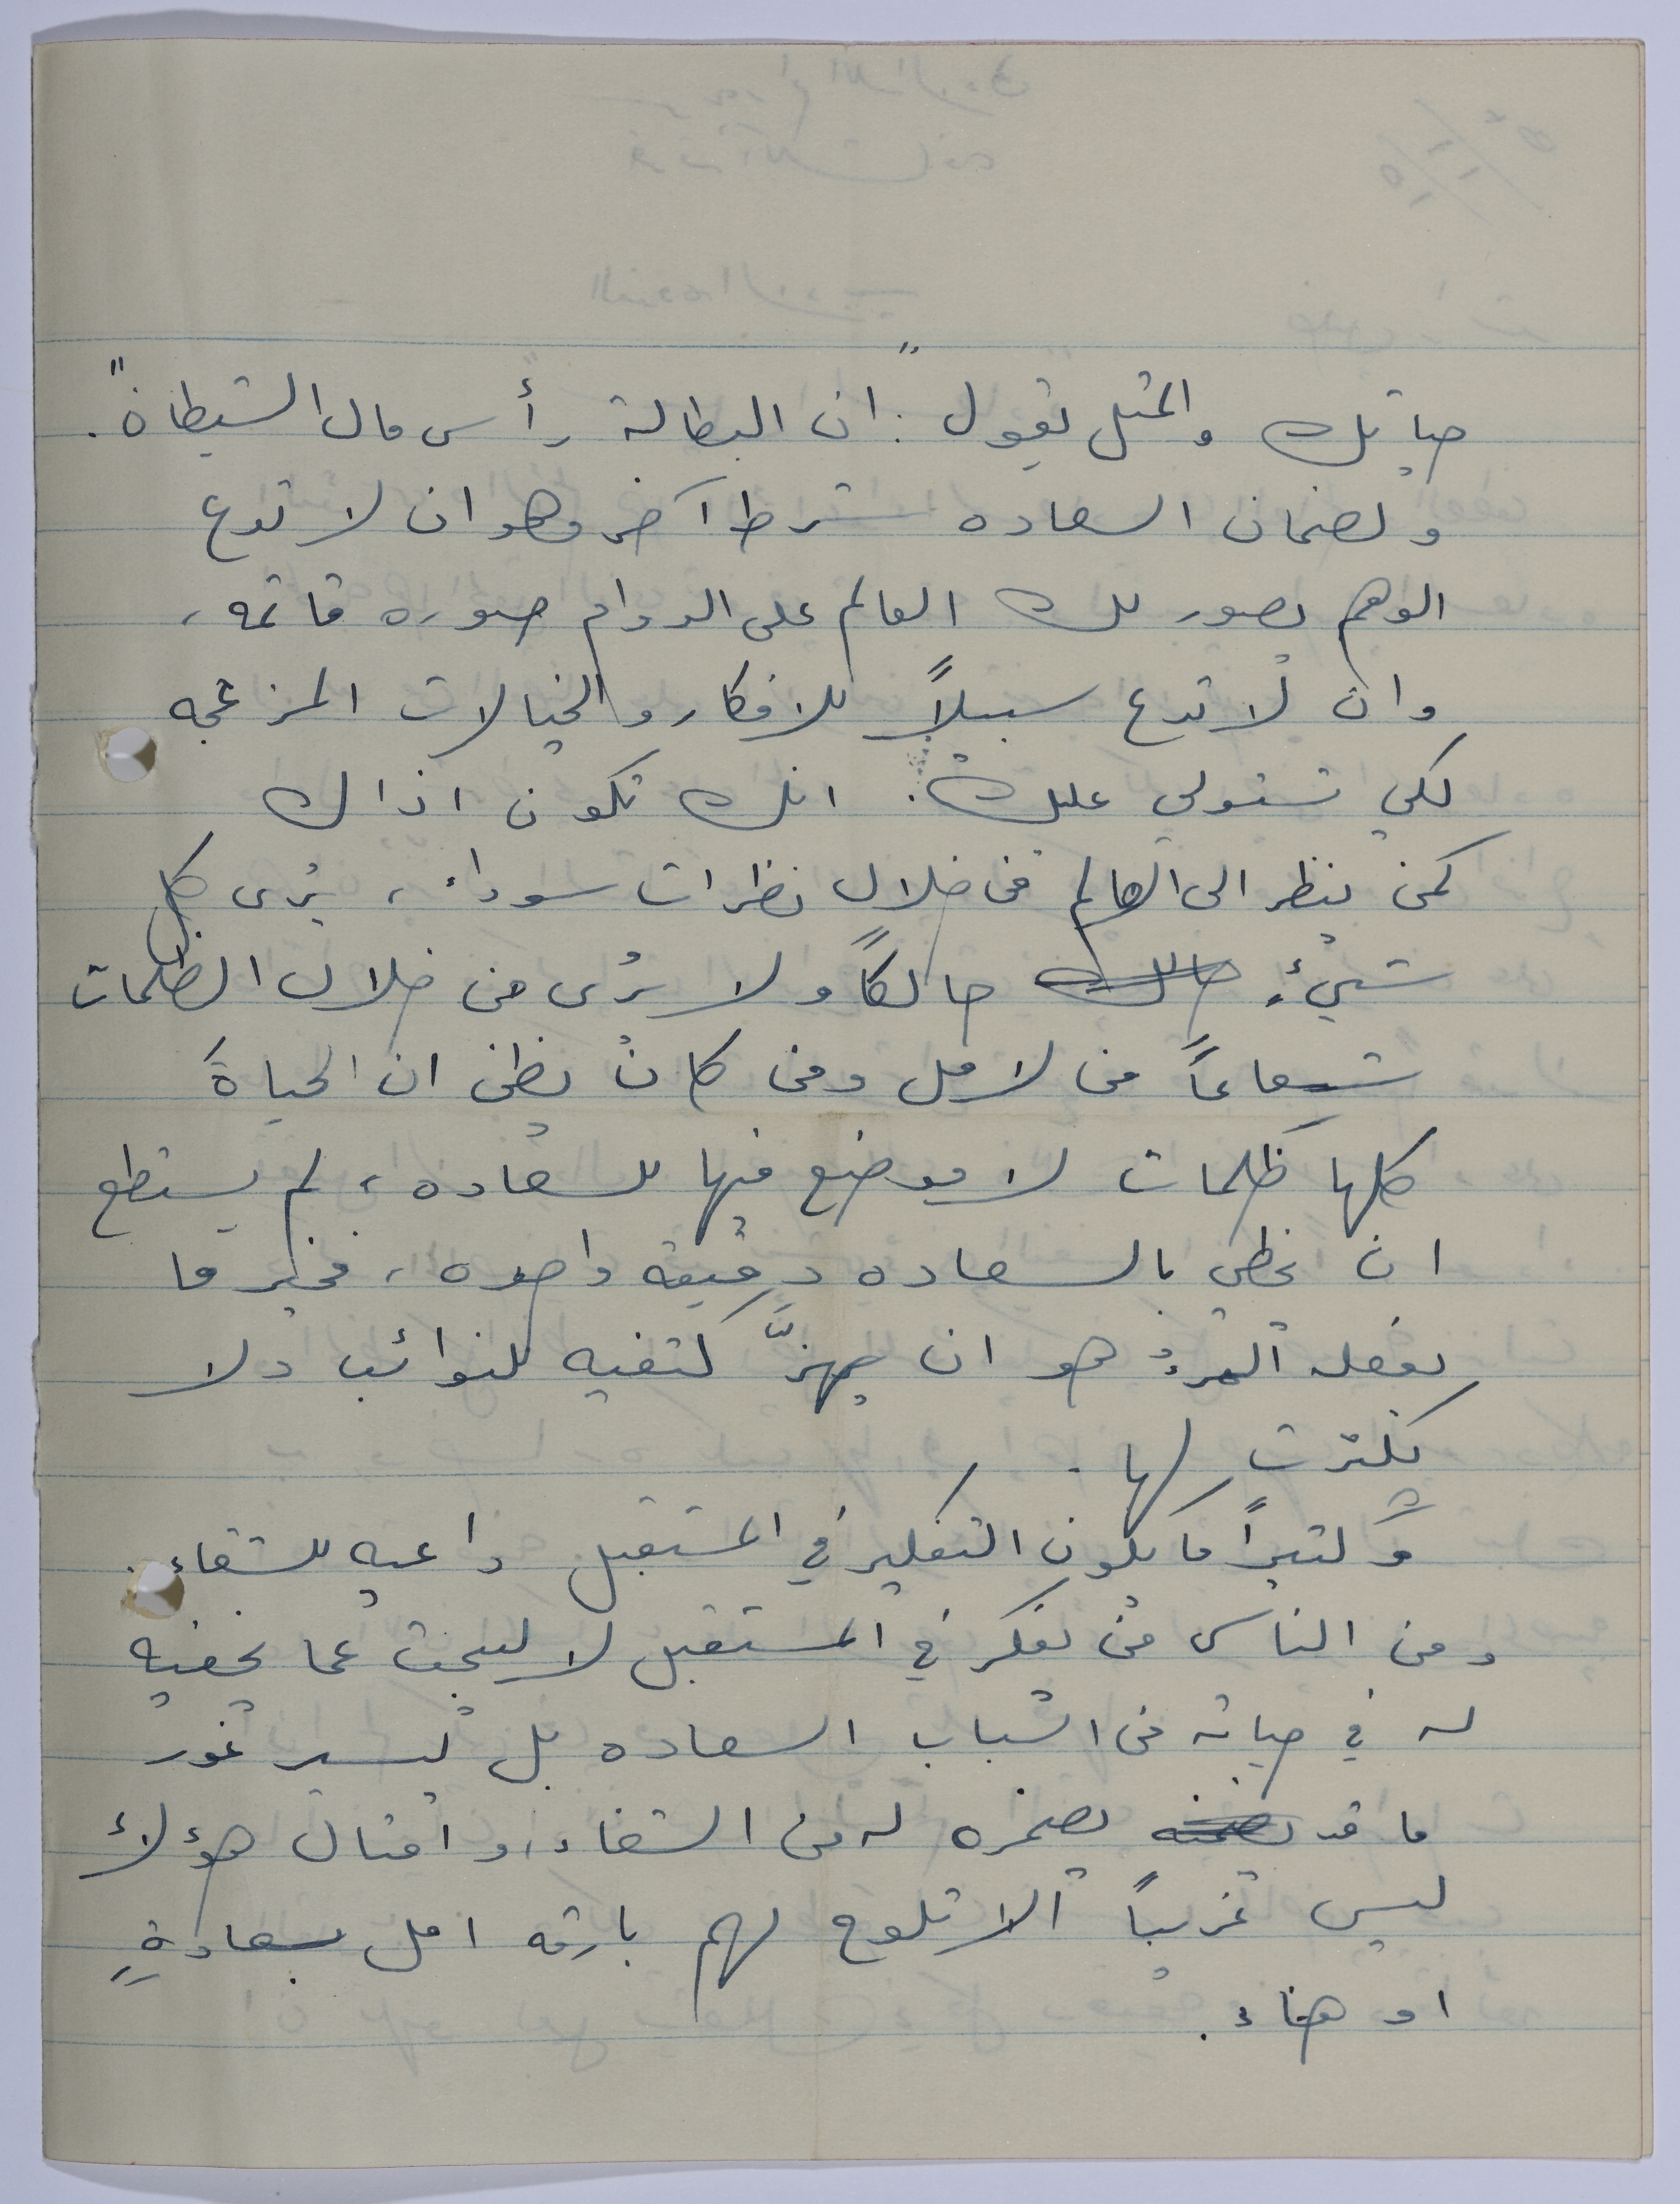 حياتك والمثل يقول: "ان البطالة رأس مال الشيطان".
ولضمان السعاده شرط آخر وهو ان لا تدع
الوهم يصور لك العالم على الدوام صوره قاتمه،
وان لا تدع سبيلاً للافكار والخيالات المزعجه
لكي تستولي عليك. انك تكون اذاك
كمن ينظر الى العالم من خلال نظرات سوداء، يرى كل
شيءٍ حالكاً ولا يرى من خلال الظلمات
شعاعاً من لامل ومن كان يظن ان الحياةَ
كلها ظلمات لا موضع فيها للسعاده، لم يستطع
ان يحظي بالسعاده دقيقة واحده، فخير ما
يفعله المرءُ هو ان يهزَّ كتفيه للنوائب ولا
يكترث لها.
وكثيراً ما يكون التفكير في المستقبل داعيه للشقاء.
ومن الناس من يفكر في المستقبل لا ليبحث عما يخفيه
له في حياته من اسباب السعاده بل ليسبر غور
ما قد يضمره له من الشقاء، وامثال هؤلاء
ليس غريباً الا تلوح لهم بارقه امل بسعادةٍ
او هناء.